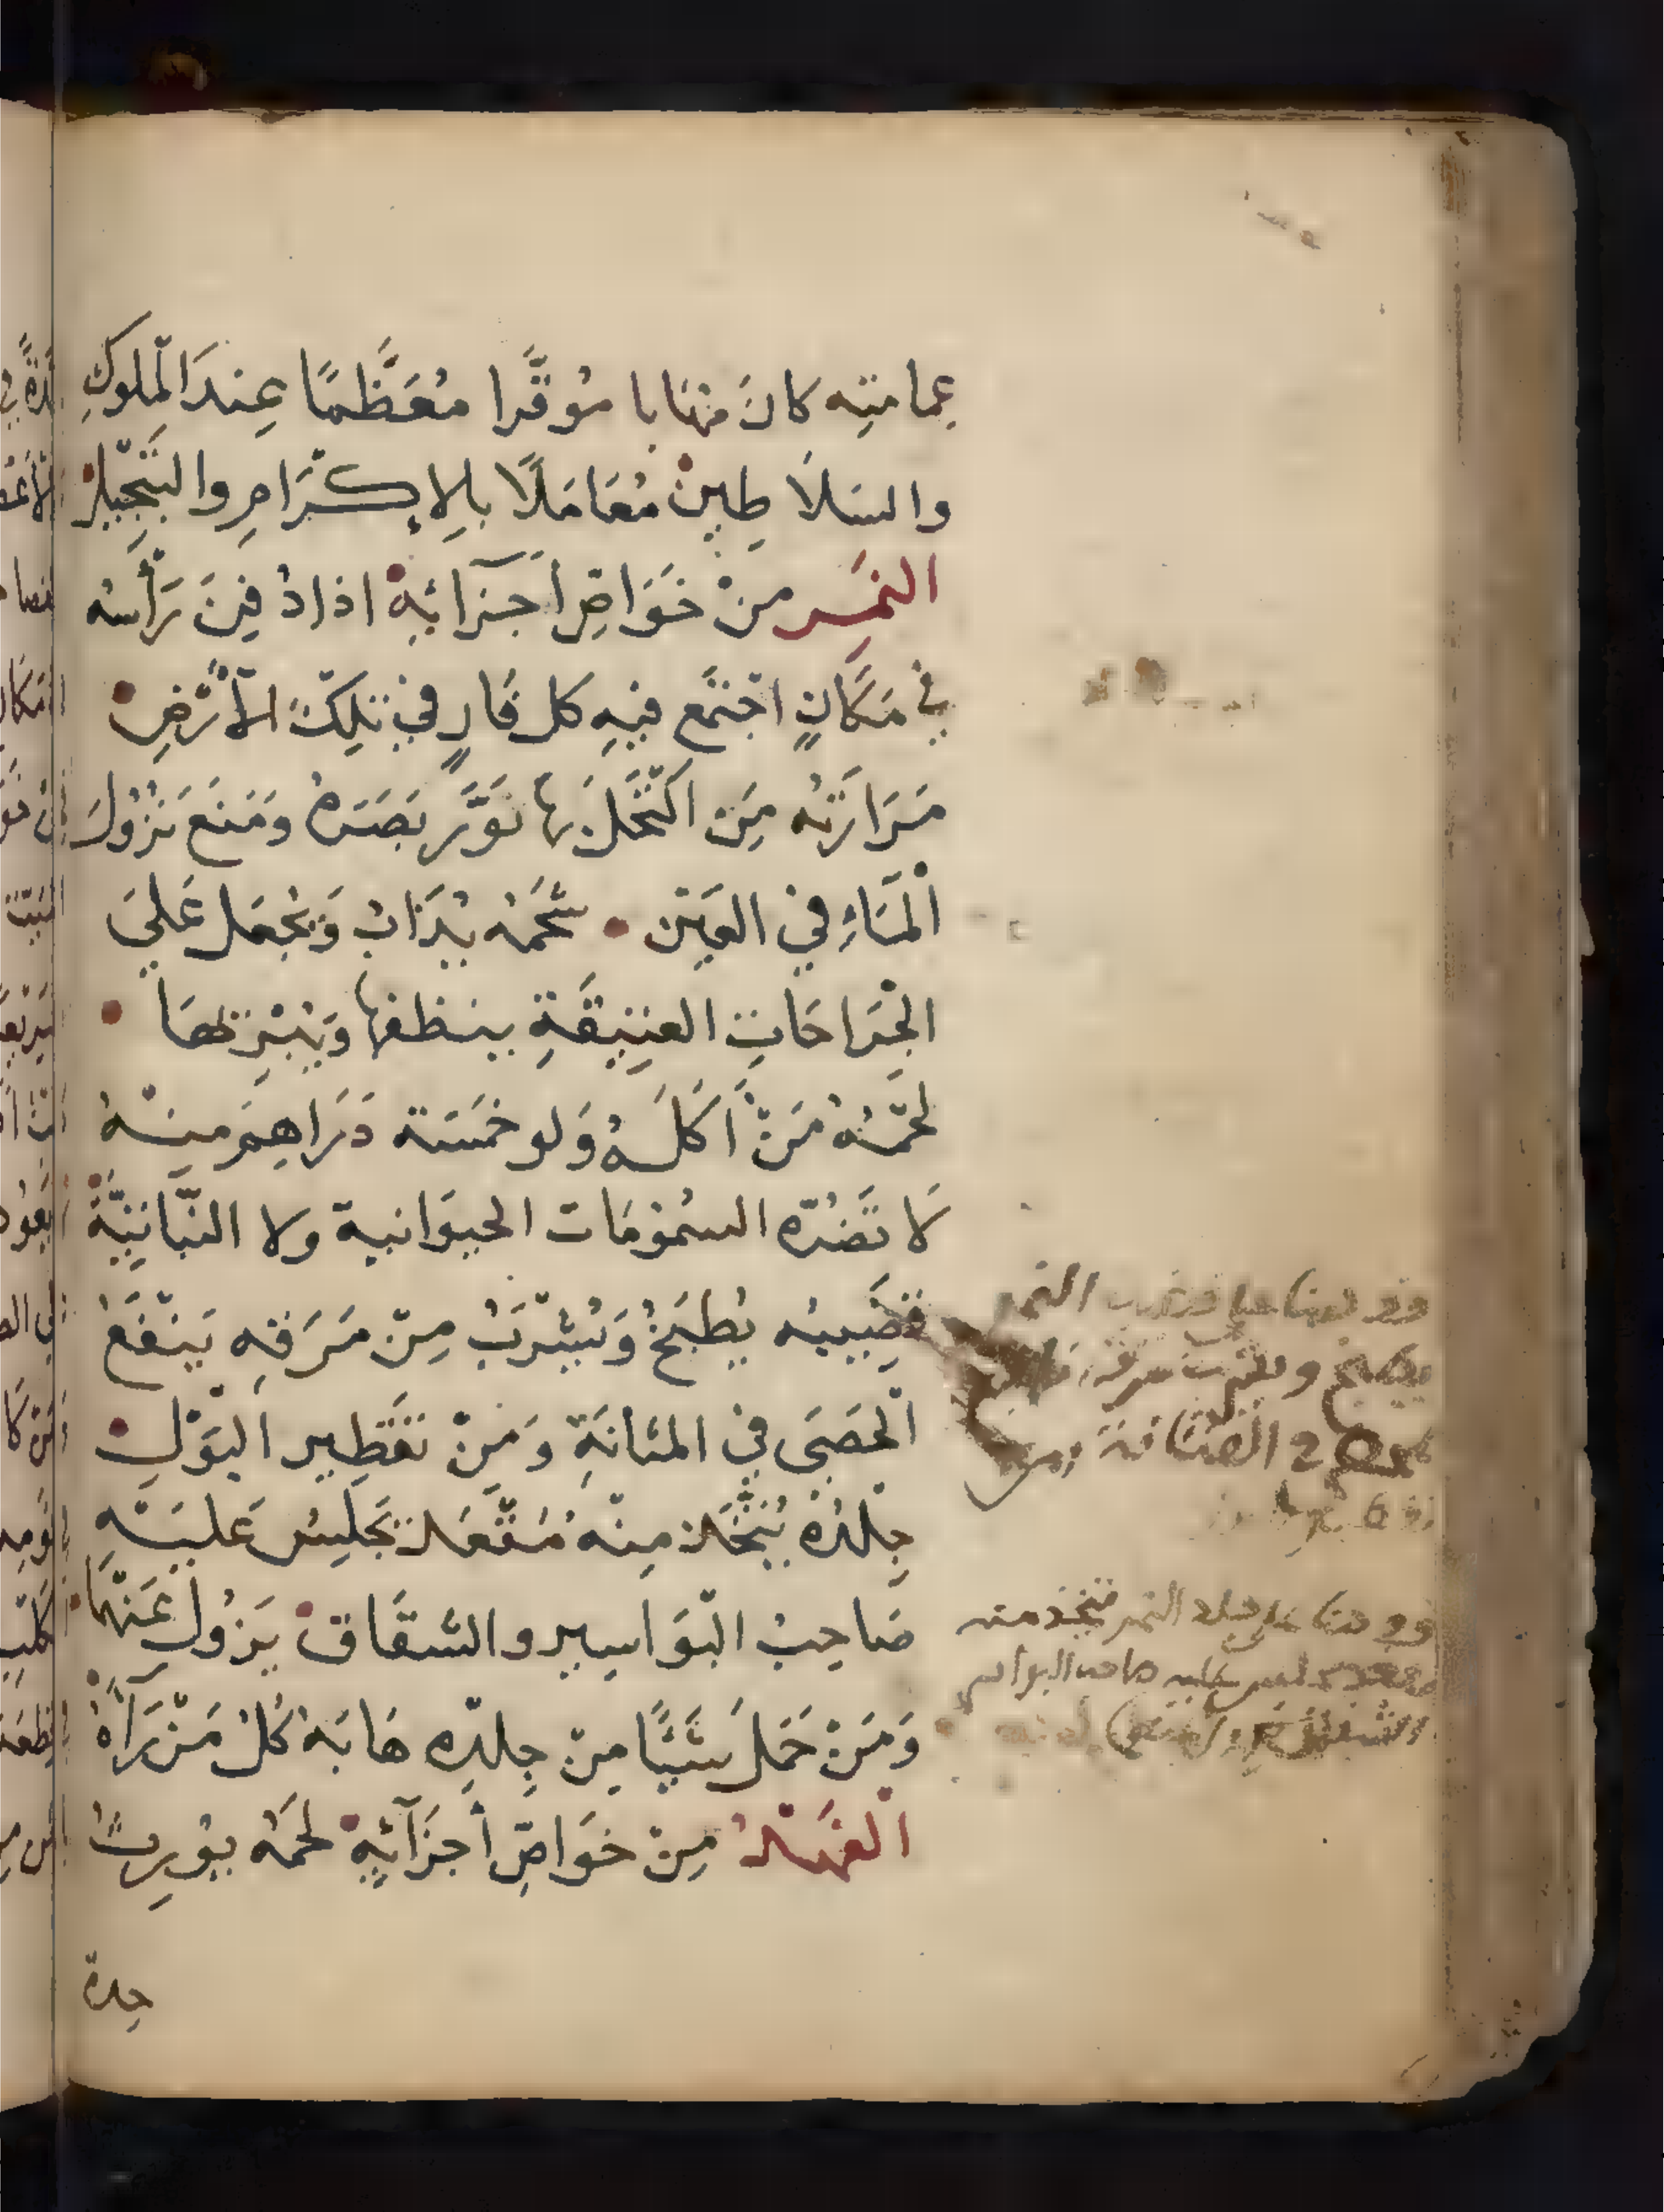 عمامتِه كانَ مُهَابا مُوَقَّرا مُعَظَّمًا عِندَ الْملوكِ
والسَلَاطِينْ مُعَامَلًا بالإكْرَامِ والتَبْجِيلْ
النَمِر مِنْ خَوَاصِّ أجْزَائِهِ اذا دُفِنَ رَأْسُه
في مَكَانٍ اجْتَمَع فيهِ كل فَارٍ في تِلكَ الْأَرْضِ
مَرَارَتُه مَن اكْتَحَلَ بها نَوَّرَ بَصَرَهُ ومَنَعَ نُزُولَ
الْمَاءِ في العَيْن شَحْمُه يُذَابُ وَيُجْعَل عَلىَ
الجْرَاحَاتِ العَتِيقَةِ ينظفها وَيُبْرِئهَا
لَحْمُهُ مَنْ أكَلَهُ وَلو خمَسَة دَرَاهِمَ مِنهُ
لَا تَضُرّه السُمُومَات الحيوَانية ولا النَّبَاتِيَّةُ
قضِيبُه يُطبَخُ وَيُشْرَبُ مِنْ مَرَقِه يَنْفَعُ
الْحَصَى في المثَانَةِ وَمِنْ تَقطِير البَوْلِ
جِلْدُهُ يُتَّخَذ مِنْهُ مُقْعَد يَجْلِسُ عَليْهِ
صَاحِبُ الْبَوَاسِير والشقَاق يَزُول عَنْهَا
وَمَنْ حَمَلَ شَيْئًا مِنْ جِلْدِه هَابَهُ كُلُ مَنْ رَآهُ
الفَهْدُ مِنْ خوَاصِّ أجزَآئِهِ لحمُه يوُرِثُ
حِدة
النمر
يطبخ ويشرب
جلد النمر فيتخذ منه
عليه صاحب البواسير